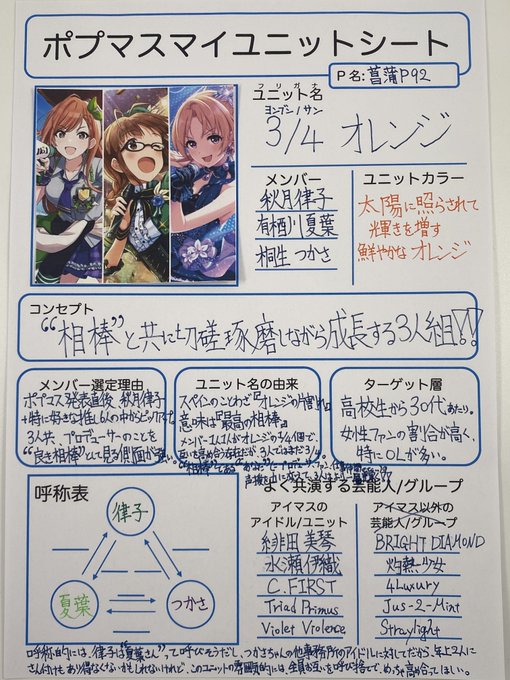 ポプマスマイユニットシート
P名:菖蒲P92
フリガナ
ユニット名
ヨンブンノサン
3/4 オレンジ
メンバー
秋月律子
有栖川夏葉
桐生つかさ
ユニットカラー
太陽に照らされて
輝きを増す
鮮やかなオレンジ
コンセプト
“相棒”と共に切磋琢磨しながら成長する3人組!!
メンバー選定理由
ポプマス発表直後、秋月律子
+特に好きな推し6人の中からピックアップ。
3人共、プロデューサーのことを
“良き相棒”として見る側面が強い。
ユニット名の由来
スペインのことわざ『オレンジの片割れ』
意味は『最高の相棒』
メンバー1人1人がオレンジの1/4個で、
互いを高め合う存在だが、3人ではまだ3/4。
“相棒”である“あなた”(=プロデューサー、ファン、仕事仲間
ターゲット層
高校生から30代あたり。
女性ファンの割合が高く、
特にOLが多い。
呼称表
律子
夏葉
つかさ
よく共演する芸能人/グループ
アイマスの
アイドル/ユニット
緋田美琴
水瀬伊織
C.FIRST
Triad Primus
Violet Violence
アイマス以外の
芸能人/グループ
BRIGHT DIAMOND
灼熱少女
4Luxury
Jus-2-Mint
Straylight
呼称的には、律子は“夏葉さん”って呼びそうだし、つかさちゃんの他事務所のアイドルに対してだから、年上2人に
さん付けもあり得なくないかもしれないけれど、このユニットの雰囲気的には、全員が互いを呼び捨てで、めっちゃ高め合ってほしい。